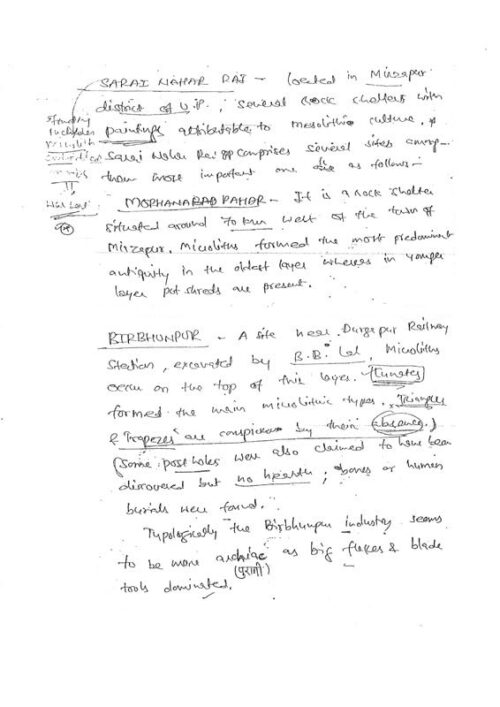 SARAI NAHAR RAI - located in Mirzapur
district of U.P., several rock shelters with
paintings attributable to mesolithic culture.
Sarai Nahar Rai comprises several sites among
them most important one are as follows-
MORHANARAD PAHAR - It is a rock shelter
situated around 70 km west of the town of
Mirzapur. Microliths formed the most predominant
antiquity in the oldest layer whereas in younger
layer pot shreds are present.
BIRBHUNPUR - A site near Durgapur Railway
Station, excavated by B.B. Lal, Microliths
occur on the top of this layer. Lunates
formed the main microlithic types. Triangles
& Trapezes are conspicuous by their absence.
Some post holes were also claimed to have been
discovered but no hearth, bones or human
burials were found.
Typologically the Birbhunpur industry seems
to be more archaic as big flakes & blade
(पुरानी)
tools dominated.